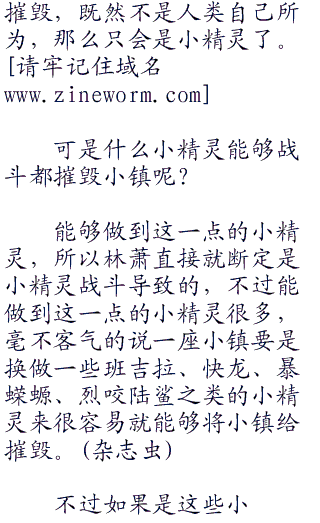 摧毁，既然不是人类自己所
为，那么只会是小精灵了。
[请牢记住域名
www.zineworm.com]
可是什么小精灵能够战
斗都摧毁小镇呢？
能够做到这一点的小精
灵，所以林萧直接就断定是
小精灵战斗导致的，不过能
做到这一点的小精灵很多，
毫不客气的说一座小镇要是
换做一些班吉拉、快龙、暴
蝾螈、烈咬陆鲨之类的小精
灵来很容易就能够将小镇给
摧毁。(杂志虫)
不过如果是这些小